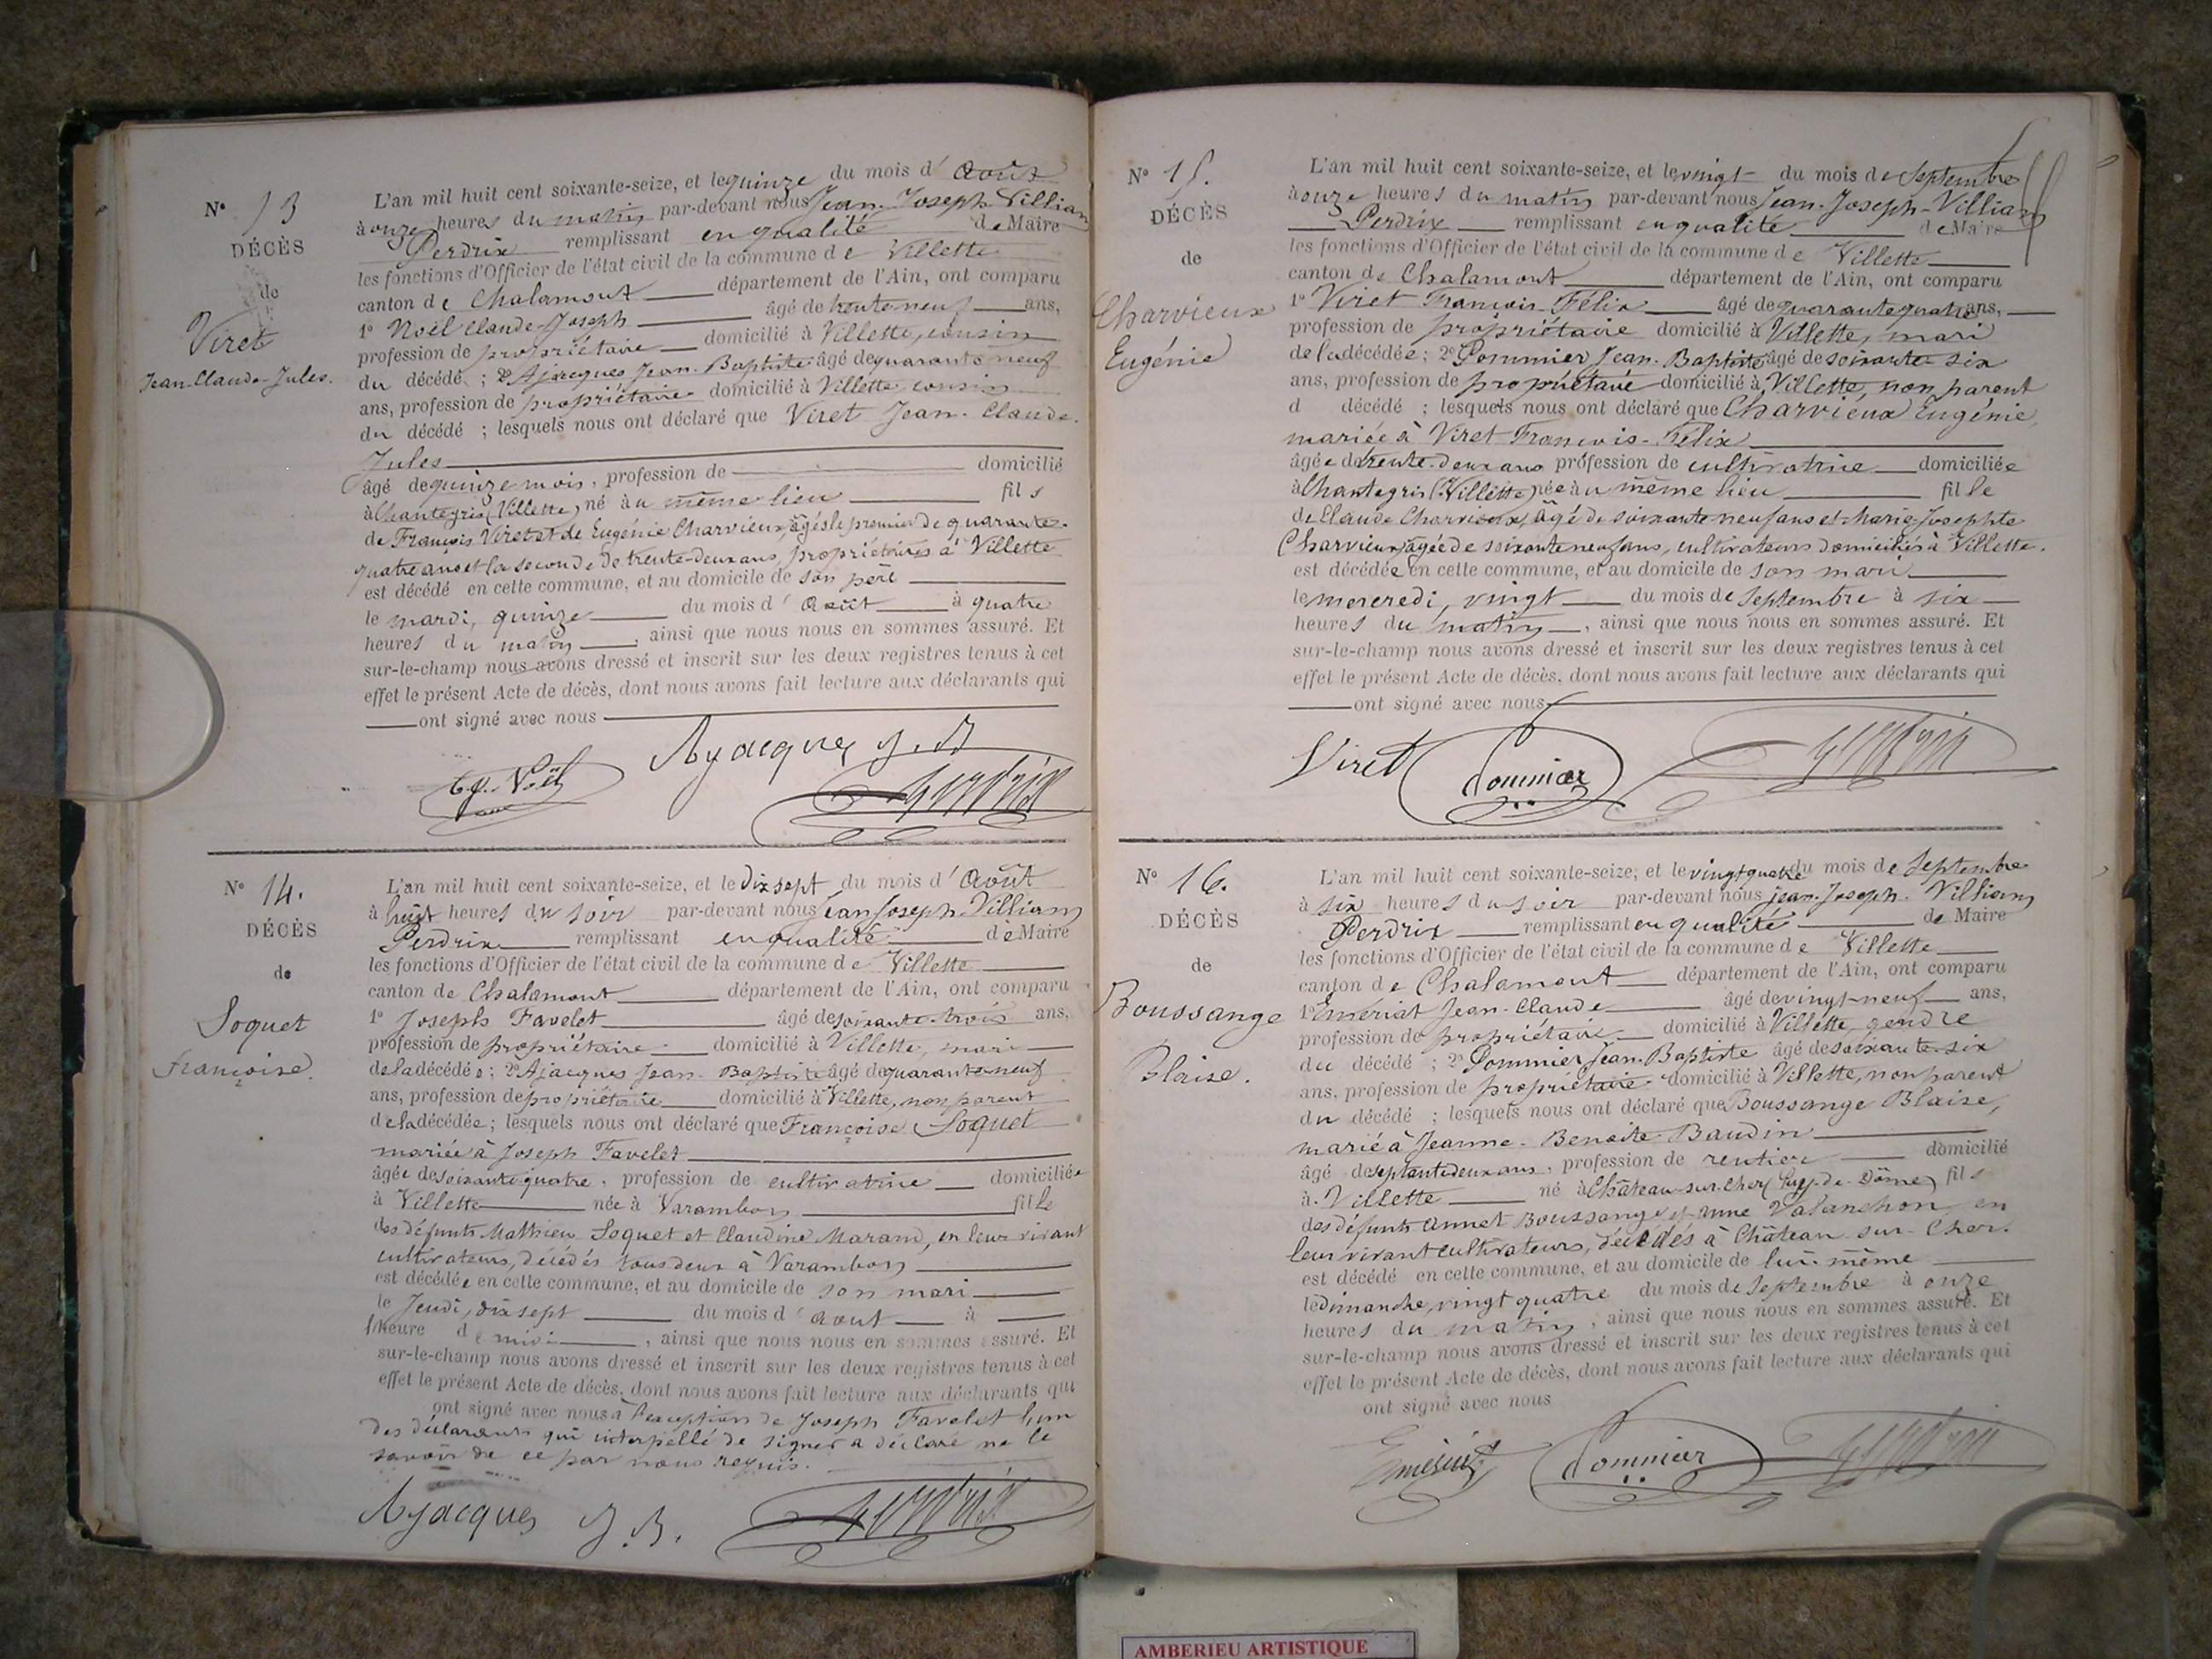 N° 13
DÉCÈS
de
Viret
Jean-Claude-Jules.
L'an mil huit cent soixante-seize, et le quinze du mois d'Août
à onze heures du matin par-devant nous Jean-Joseph-Villiam
Perdrix remplissant en qualité de Maire
les fonctions d'Officier de l'état civil de la commune de Villette
canton de Chalamont département de l'Ain, ont comparu
1° Noël Claude-Joseph âgé de trente neuf ans,
profession de propriétaire domicilié à Villette, cousin
du décédé ; 2° Ajacques Jean-Baptiste âgé de quarante neuf
ans, profession de propriétaire domicilié à Villette cousin
du décédé ; lesquels nous ont déclaré que Viret Jean-Claude-
Jules
âgé de quinze mois, profession de domicilié
à Chantegris (Villette) né au même lieu fils
de François Viret et de Eugénie Charvieux, âgés le premier de quarante-
quatre ans et la seconde de trente-deux ans, propriétaires à Villette
est décédé en cette commune, et au domicile de son père
le mardi, quinze du mois d'Août à quatre
heures du matin, ainsi que nous nous en sommes assuré. Et
sur-le-champ nous avons dressé et inscrit sur les deux registres tenus à cet
effet le présent Acte de décès, dont nous avons fait lecture aux déclarants qui
ont signé avec nous
Ajacques J. B
C.J. Noël
Perdrix
N° 14.
DÉCÈS
de
Soquet
Françoise.
L'an mil huit cent soixante-seize, et le dix sept du mois d'Août
à huit heures du soir par-devant nous Jean Joseph-Villiam
Perdrix remplissant en qualité de Maire
les fonctions d'Officier de l'état civil de la commune de Villette
canton de Chalamont département de l'Ain, ont comparu
1° Joseph Favelet âgé de soixante-trois ans,
profession de propriétaire domicilié à Villette, mari
de la décédée ; 2° Ajacques Jean-Baptiste âgé de quarante neuf
ans, profession de propriétaire domicilié à Villette, non parent
de la décédée ; lesquels nous ont déclaré que Françoise Soquet
mariée à Joseph Favelet
âgée de soixante quatre, profession de cultivatrice domiciliée
à Villette née à Varambon fille
des défunts Mathieu Soquet et Claudine Marand, en leur vivant
cultivateurs, décédés tous deux à Varambon
est décédée en cette commune, et au domicile de son mari
le Jeudi, dix sept du mois d'aout à
1 heure de midi, ainsi que nous nous en sommes assuré. Et
sur-le-champ nous avons dressé et inscrit sur les deux registres tenus à cet
effet le présent Acte de décès, dont nous avons fait lecture aux déclarants qui
ont signé avec nous à l'exception de Joseph Favelet l'un
des déclarants qui interpellé de signer a déclaré ne le
savoir de ce par nous requis.
Ajacques J. B.
Perdrix
N° 15.
DÉCÈS
de
Charvieux
Eugénie
L'an mil huit cent soixante-seize, et le vingt du mois de Septembre
à onze heures du matin par-devant nous Jean-Joseph-Villiam
Perdrix remplissant en qualité de Maire
les fonctions d'Officier de l'état civil de la commune de Villette
canton de Chalamont département de l'Ain, ont comparu
1° Viret François-Félix âgé de quarante quatre ans,
profession de propriétaire domicilié à Villette, mari
de la décédée ; 2° Pommier Jean-Baptiste âgé de soixante-six
ans, profession de propriétaire domicilié à Villette, non parent
d décédé ; lesquels nous ont déclaré que Charvieux Eugénie,
mariée à Viret François-Félix
âgée de trente-deux ans profession de cultivatrice domiciliée
à Chantegris (Villette) née au même lieu fille
de Claude Charvieux, âgé de soixante neuf ans et Marie-Josephte
Charvieux, âgée de soixante neuf ans, cultivateurs domiciliés à Villette.
est décédée en cette commune, et au domicile de son mari
le mercredi, vingt du mois de Septembre à six
heures du matin, ainsi que nous nous en sommes assuré. Et
sur-le-champ nous avons dressé et inscrit sur les deux registres tenus à cet
effet le présent Acte de décès, dont nous avons fait lecture aux déclarants qui
ont signé avec nous
Viret Pommier Perdrix
N° 16.
DÉCÈS
de
Boussange
Blaise.
L'an mil huit cent soixante-seize, et le vingt quatre du mois de Septembre
à six heures du soir par-devant nous jean-Joseph-Villiam
Perdrix remplissant en qualité de Maire
les fonctions d'Officier de l'état civil de la commune de Villette
canton de Chalamont département de l'Ain, ont comparu
1° Emériat Jean-Claude âgé de vingt-neuf ans,
profession de propriétaire domicilié à Villette, gendre
du décédé ; 2° Pommier Jean-Baptiste âgé de soixante-six
ans, profession de propriétaire domicilié à Villette, non parent
du décédé ; lesquels nous ont déclaré que Boussange Blaise,
marié à Jeanne-Benoite Baudin
âgé de septante deux ans, profession de rentier domicilié
à Villette né à Château-sur-Cher, Puy-de-Dôme, fils
des défunts Annet Boussange et Anne Valanchon, en
leur vivant cultivateurs, décédés à Château-sur-Cher.
est décédé en cette commune, et au domicile de lui-même
le dimanche, vingt quatre du mois de Septembre à onze
heures du matin, ainsi que nous nous en sommes assuré. Et
sur-le-champ nous avons dressé et inscrit sur les deux registres tenus à cet
effet le présent Acte de décès, dont nous avons fait lecture aux déclarants qui
ont signé avec nous
Emériat Pommier Perdrix
AMBERIEU ARTISTIQUE